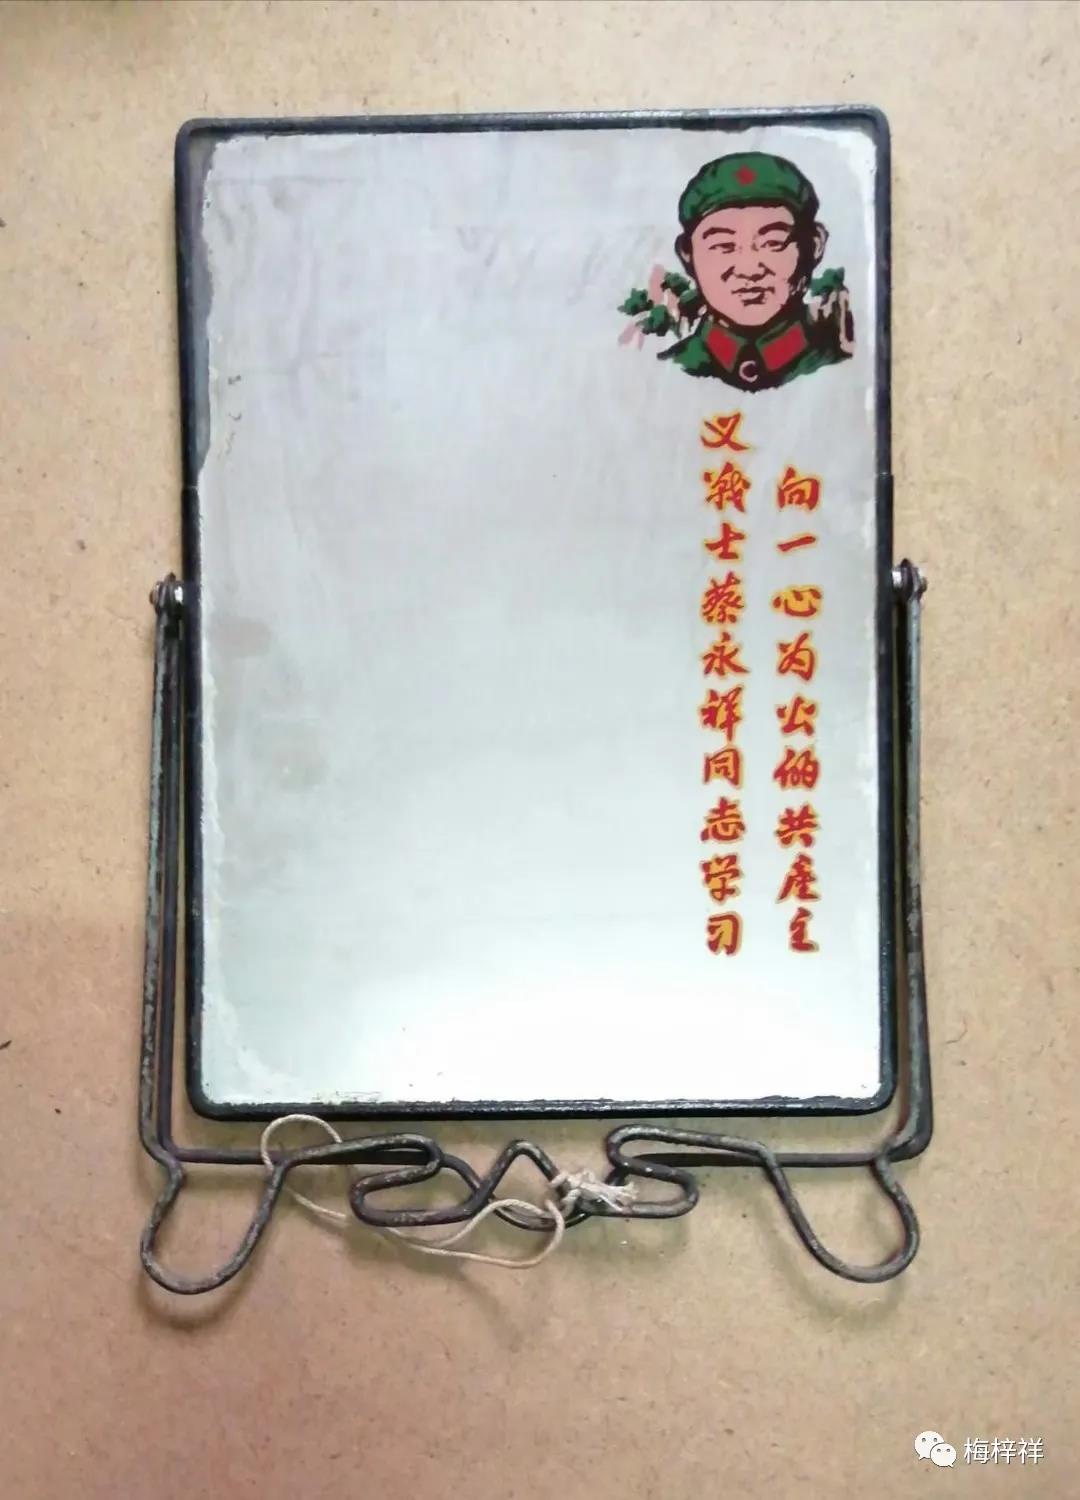 向一心为公的共產主
义战士蔡永祥同志学习
梅梓祥